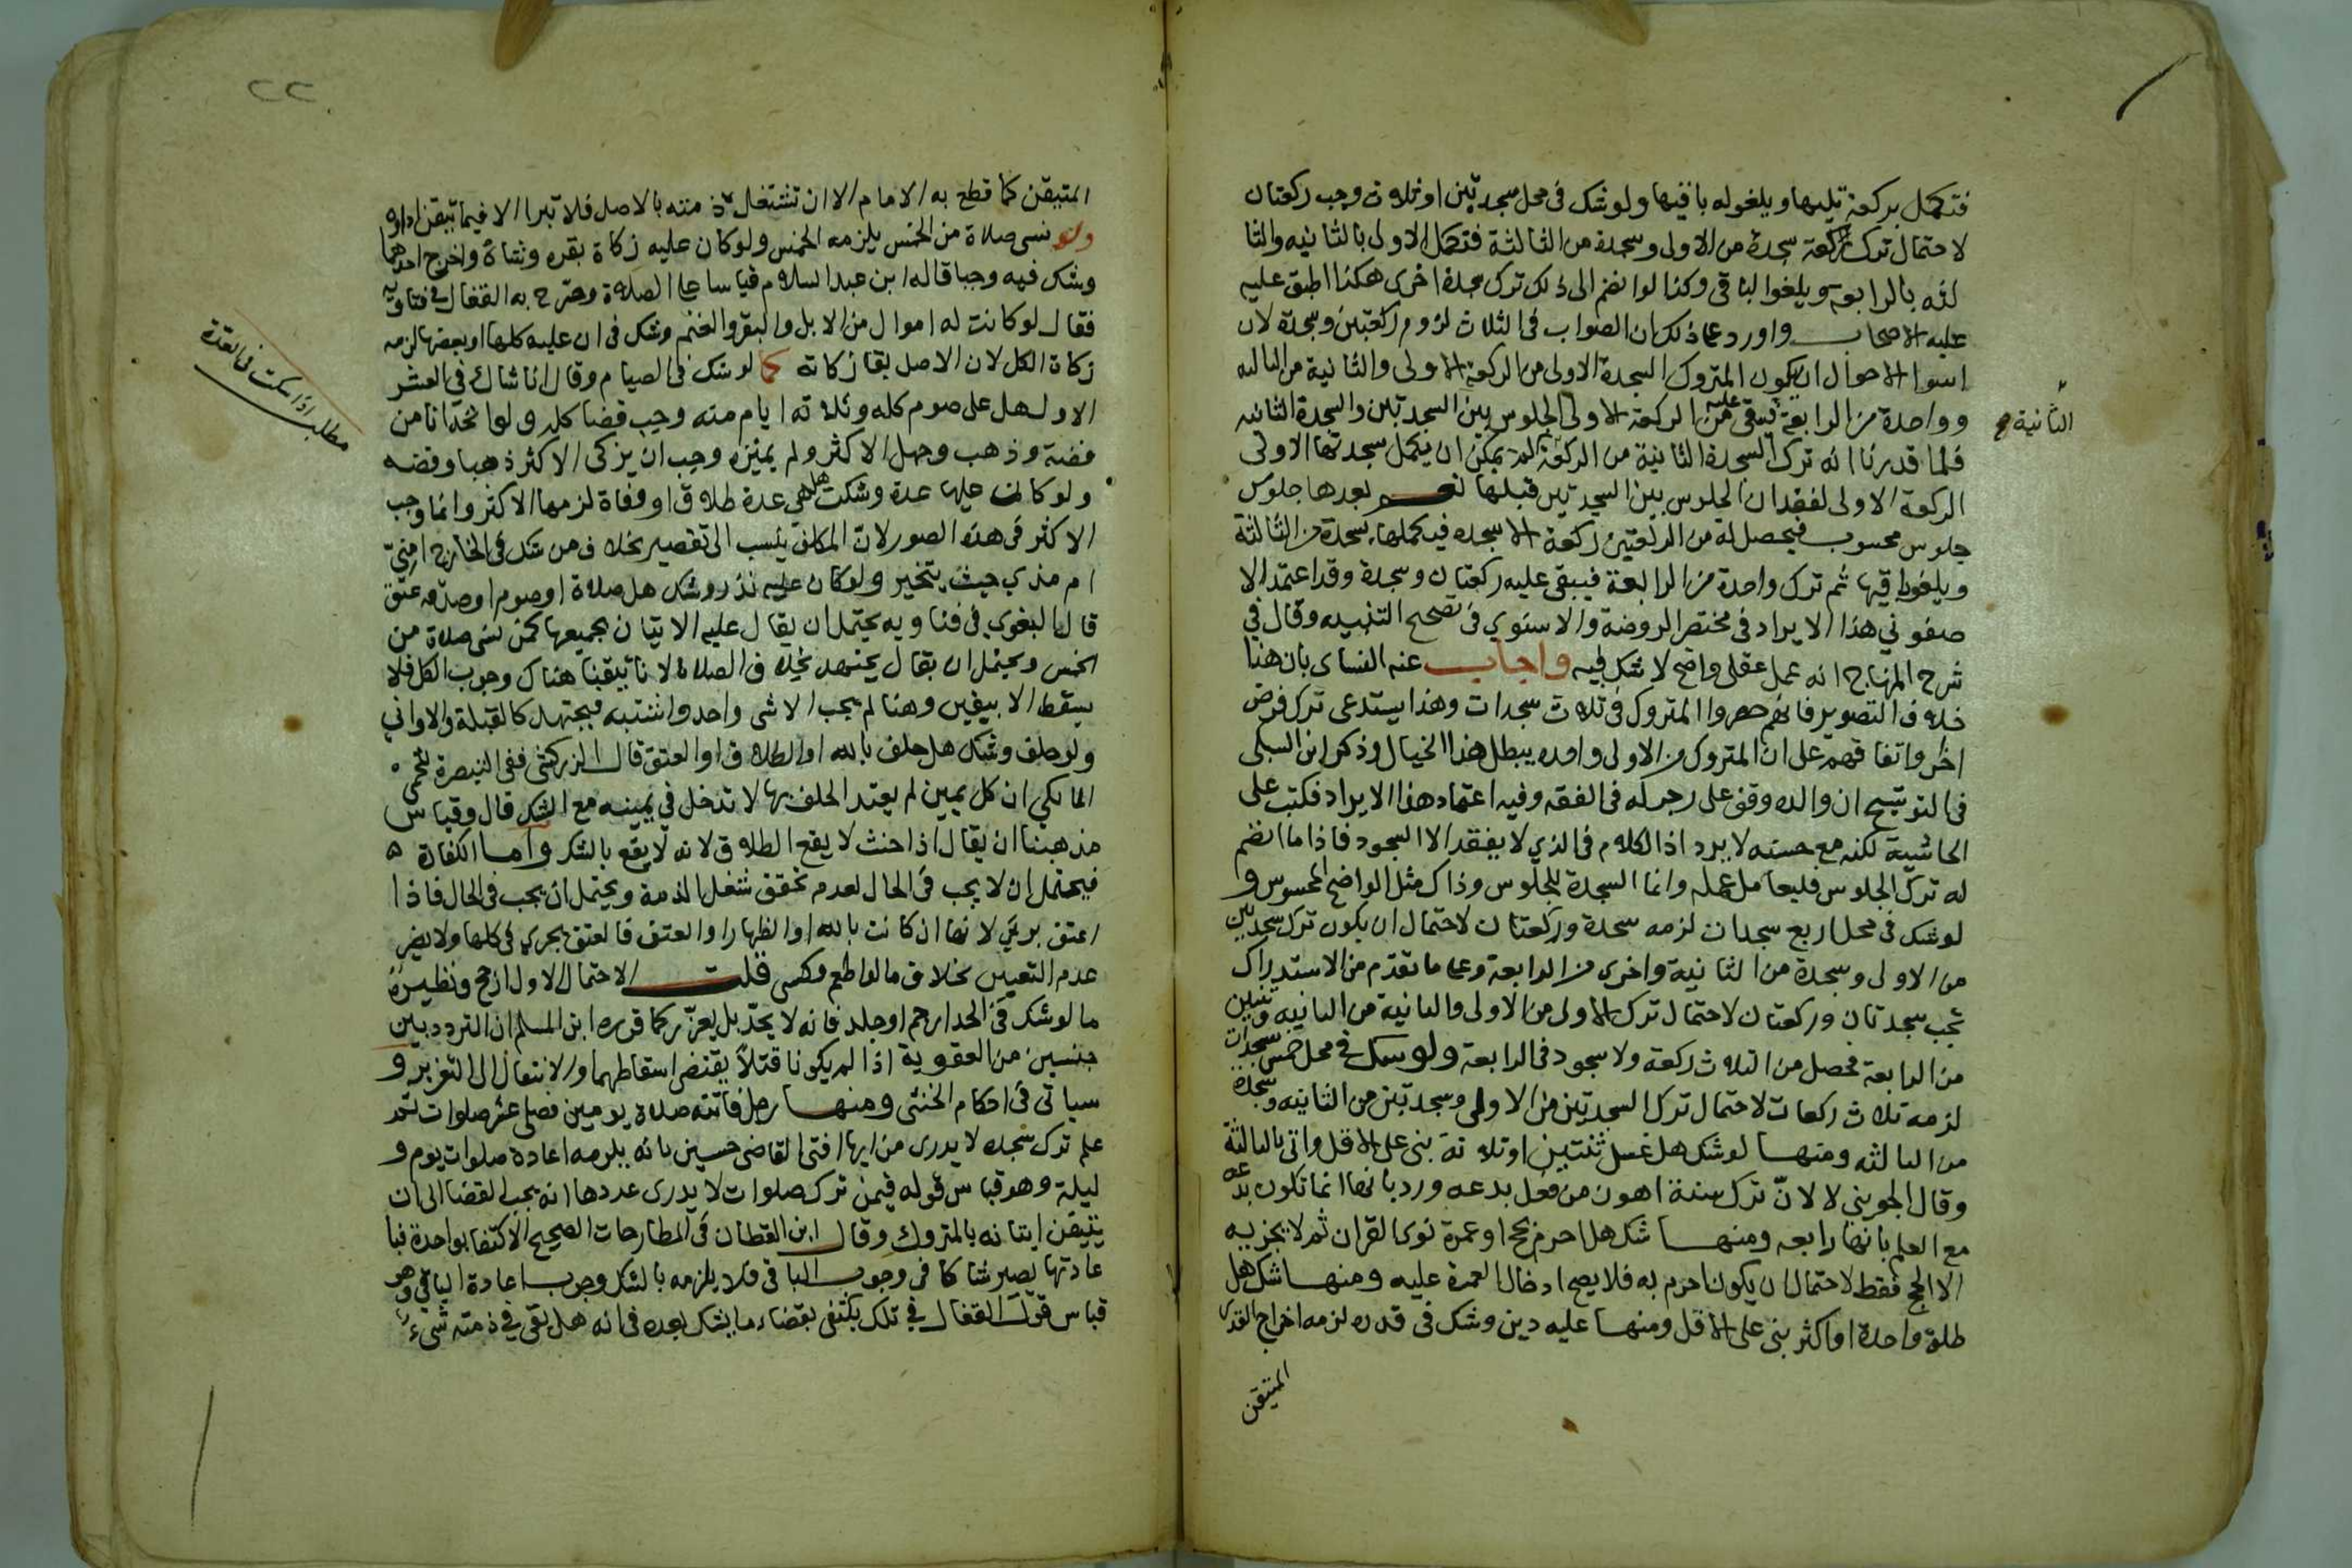 فتكمل بركعة تليها ويلغوله باقيها ولو شك في محل سجدتين او ثلاث وجب ركعتان
لاحتمال ترك ركعة سجدة من الاولى وسجدة من الثالثة فتكمل الاولى بالثانيه والثا
لثه بالرابعة ويلغوا الباقي وكذا لو انضم الى ذلك ترك سجدة اخرى هكذا اطبق عليه
عليه الاصحاب واورد على ذلك ان الصواب في الثلاث لزوم ركعتين وسجدة لان
اسوا الاحوال ان يكون المتروك السجدة الاولى من الركعة الاولى والثانية من الثالثه
وواحدة من الرابعة فيبقى عليه من الركعة الاولى الجلوس بين السجدتين والسجدة الثانيه
الثانية
فلما قدرنا انه ترك السجدة الثانية من الركعة لم يمكن ان يكمل سجدتها الاولى
الركعة الاولى لفقدان الجلوس بين السجدتين قبلها نعم بعدها جلوس
جلوس محسوب فيحصل له من الركعتين ركعة الا سجده فيكملها بسجدة من الثالثة
ويلغو باقيها ثم ترك واحدة من الرابعة فيبقى عليه ركعتان وسجدة وقد اعتمد الا
صفوني هذا الايراد في مختصر الروضة والاسنوي في تصحيح التنبيه وقال في
شرح المنهاج انه عمل عقلي واضح لا شك فيه واجاب عنه النساى بان هذا
خلاف التصوير فانهم حصروا المتروك في ثلاث سجدات وهذا يستدعى ترك فرض
اخر واتفاقهم على ان المتروك من الاولى واحده يبطل هذا الخيال وذكر ابن السبكي
في التوشيح ان والده وقف على رجز له في الفقه وفيه اعتماد هذا الايراد فكتب على
الحاشية لكنه مع حسنه لا يرد اذ الكلام في الذي لا يفقد الا السجود فاذا ما انضم
له ترك الجلوس فليعامل عمله وانما السجدة للجلوس وذاك مثل الواضح المحسوس و
لو شك في محل اربع سجدات لزمه سجدة وركعتان لاحتمال ان يكون ترك سجدتين
من الاولى وسجدة من الثانية واخرى من الرابعة وعلى ما تقدم من الاستدراك
تجب سجدتان وركعتان لاحتمال ترك الاولى من الاولى والثانية من الثانيه وثنتين
من الرابعة فحصل من الثلاث ركعة ولا سجود في الرابعة ولو شك في محل خمس سجدات
لزمه ثلاث ركعات لاحتمال ترك السجدتين من الاولى وسجدتين من الثانيه وسجدة
من الثالثه ومنها لو شك هل غسل ثنتين او ثلاثة بنى على الاقل واتى بالثالثة
وقال الجويني لا لانّ ترك سنة اهون من فعل بدعه ورد بانها انما تكون بدعه
مع العلم بانها رابعه ومنها شك هل احرم بحج او عمرة نوى القران ثم لا يجزيه
الا الحج فقط لاحتمال ان يكون احرم به فلا يصح ادخال العمرة عليه ومنها شك هل
طلق واحدة او اكثر بنى على الاقل ومنها عليه دين وشك في قدره لزمه اخراج القدر
المتيقن
٢٢
المتيقن كما قطع به الامام الا ان تشتغل ذمته بالاصل فلا تبرا الا فيما تيقن اداؤه
ولو نسى صلاة من الخمس يلزمه الخمس ولو كان عليه زكاة بقره وشاة واخرج احدهما
وشك فيه وجبا قاله ابن عبد السلام قياسا على الصلاة وصرح به القفال في فتاويه
فقال لو كانت له اموال من الابل والبقر والغنم وشك في ان عليه كلها او بعضها لزمه
زكاة الكل لان الاصل بقا زكاته كما لو شك في الصيام وقال انا شاك في العشر
الاول هل على صوم كله وثلاثه ايام منه وجب قضا كله ولو اتخذ انا من
فضة وذهب وجهل الاكثر ولم يميزه وجب ان يزكى الاكثر ذهبا وفضه
ولو كانت عليها عدة وشكت هل هي عدة طلاق او وفاة لزمها الاكثر وانما وجب
الاكثر في هذه الصور لان المكلف ينسب الى تقصير بخلاف من شك في الخارج امنيّ
ام مذي حيث يتخير ولو كان عليه نذر وشك هل صلاة او صوم او صدقه عتق
قال البغوي في فتاويه يحتمل ان يقال عليه الاتيان بجميعها كمن نسى صلاة من
الخمس ويحتمل ان يقال يجتهد بخلاف الصلاة لانا تيقنا هناك وجوب الكل فلا
يسقط الا بيقين وهنا لم يجب الا شى واحد واشتبه فيجتهد كالقبلة والاواني
ولو حلف وشك هل حلف بالله او الطلاق او العتق قال الزركشي ففي التبصرة للخمي
المالكي ان كل يمين لم يعتد الحلف بها لا تدخل في يمينه مع الشك قال وقياس
مذهبنا ان يقال اذا حنث لا يقع الطلاق لانه لا يقع بالشك واما الكفارة
فيحتمل ان لا يجب في الحال لعدم تحقق شغل الذمة ويحتمل ان يجب في الحال فاذا
اعتق برئ لانها ان كانت بالله او الظهار او العتق فالعتق يجرى في كلها ولا يضر
عدم التعيين بخلاف ما لو اطعم وكسى قلت الاحتمال الاول ارجح ونظيره
ما لو شك في الحد ارجم او جلد فانه لا يحدّ بل يعزّر كما قرره ابن المسلم ان التردد بين
جنسين من العقوبة اذا لم يكونا قتلاً يقتضى اسقاطهما والانتقال الى التعزير و
سياتى في احكام الخنثى ومنها رجل فاتته صلاة يومين فصلى عشر صلوات ثم
علم ترك سجده لا يدرى من ايها افتى القاضى حسين بانه يلزمه اعادة صلوات يوم و
ليلة وهو قياس قوله فيمن ترك صلوات لا يدرى عددها انه يجب القضا الى ان
يتيقن اتيانه بالمتروك وقال ابن القطان في المطارحات الصحيح الاكتفا بواحدة فبا
عادتها يصير شاكا في وجوب الباقي فلا يلزمه بالشك وجوب اعادة الباقي وهو
قياس قول القفال في تلك يكتفى بقضاء ما يشك بعده في انه هل بقى في ذمته شىء
مطلب اذا شكت في العدة